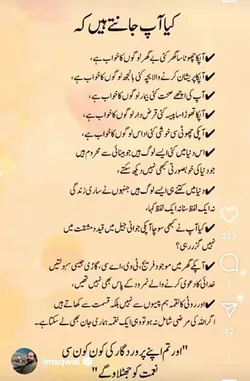 کیا آپ جانتے ہیں کہ
✔آپکا چھوٹا سا گھر کئی بے گھر لوگوں کا خواب ہے،
✔آپکا پریشان کرنے والا بچہ کئی بانجھ لوگوں کا خواب ہے،
✔آپ کی اچھی صحت کئی بیمار لوگوں کا خواب ہے،
✔آپکا تھوڑا سا پیسہ کئی قرض دار لوگوں کا خواب ہے،
✔آپکی چھوٹی سی خوشی کئی اداس لوگوں کا خواب ہے،
✔اس دنیا میں کئی ایسے لوگ ہیں جو بینائی سے محروم ہیں
جو دنیا کی خوبصورتی کبھی نہیں دیکھ سکتے،
✔دنیا میں کتنے ہی ایسے لوگ ہیں جنہوں نے ساری زندگی
نہ ایک لفظ سنا نہ ایک لفظ کہا،
✔کیا آپ نے کبھی سوچا آپکی جوانی جیل میں قید و مشقت میں
نہیں گزر رہی؟
✔آپکے گھر میں موجود فریج، ٹی وی، اے سی، گاڑی جیسی سہولتیں
خدائی کا دعوی کرنے والے نمرود کے پاس بھی نہیں تھیں،
✔اور روٹی کا لقمہ ہم پیسوں سے نہیں بلکہ قسمت سے کھاتے ہیں
اگر اللہ کی مرضی شامل نہ ہو تو وہی ایک لقمہ ہماری جان بھی لے سکتا ہے۔
"اور تم اپنے پروردگار کی کون کون سی
نعمت کو جھٹلاو گے"
253
42
imaqwal